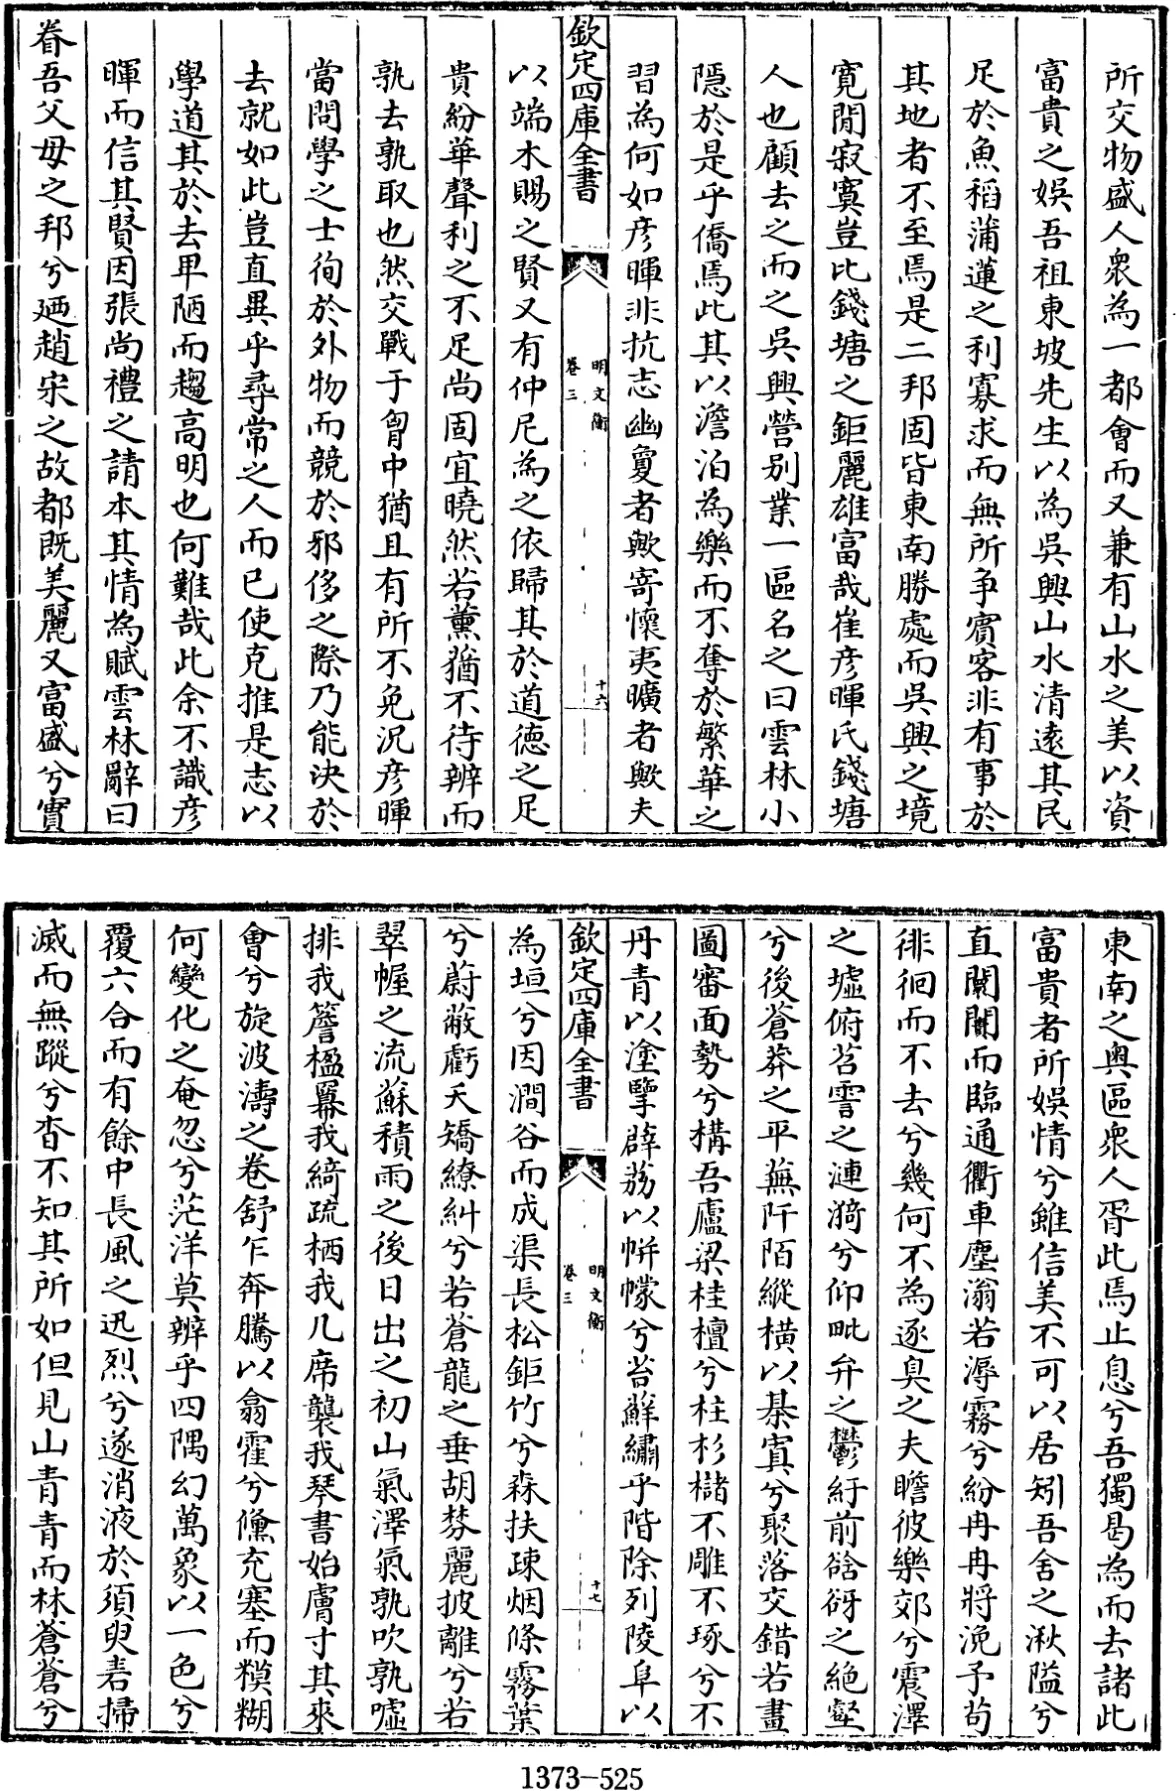 所交物盛人衆為一都會而又兼有山水之美以資
富貴之娛吾祖東坡先生以為吳興山水清逺其民
足於魚稻蒲蓮之利寡求而無所争賓客非有事於
其地者不至焉是二邦固皆東南勝處而吳興之境
寛閒寂寞豈比錢塘之鉅麗雄富哉崔彦暉氏錢塘
人也顧去之而之吳興營别業一區名之曰雲林小
隱於是乎僑焉此其以澹泊為樂而不奪於繁華之
習為何如彦暉非抗志幽敻者歟寄懐夷曠者歟夫
欽定四庫全書
明文衡
卷三
十六
以端木賜之賢又有仲尼為之依歸其於道德之足
貴紛華聲利之不足尚固宜曉然若薫猶不待辨而
孰去孰取也然交戰于胷中猶且有所不免況彦暉
當問學之士徇於外物而競於邪侈之際乃能決於
去就如此豈直異乎尋常之人而已使克推是志以
學道其於去卑陋而趨高明也何難哉此余不識彦
暉而信其賢因張尚禮之請本其情為賦雲林辭曰
眷吾父母之邦兮廼趙宋之故都既美麗又富盛兮實
東南之奥區衆人胥此焉止息兮吾獨曷為而去諸此
富貴者所娛情兮雖信美不可以居矧吾舍之湫隘兮
直闤闠而臨通衢車塵滃若滛霧兮紛冉冉將浼予茍
徘徊而不去兮幾何不為逐臭之夫瞻彼樂郊兮震澤
之墟俯苕霅之漣漪兮仰毗弁之鬱紆前谽谺之絶壑
兮後蒼莽之平蕪阡陌縱横以棊寘兮聚落交錯若畫
圖審面勢兮構吾廬梁桂檀兮柱杉櫧不雕不琢兮不
丹青以塗塈薜荔以帡幪兮苔蘚繡乎階除列陵阜以
欽定四庫全書
明文衡
卷三
十七
為垣兮因澗谷而成渠長松鉅竹兮森扶疎烟條霧葉
兮蔚蔽虧夭矯繚糾兮若蒼龍之垂胡棼麗披離兮若
翠幄之流蘇積雨之後日出之初山氣澤氣孰吹孰嘘
排我簷楹羃我綺疏栖我几席襲我琴書始膚寸其來
會兮旋波濤之卷舒乍奔騰以翕霍兮儵充塞而糢糊
何變化之奄忽兮茫洋莫辨乎四隅幻萬象以一色兮
覆六合而有餘中長風之迅烈兮遂消液於須臾若掃
滅而無蹤兮杳不知其所如但見山青青而林蒼蒼兮
1373-525